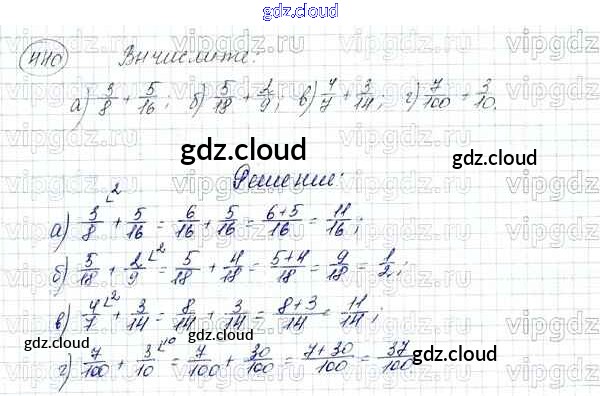 gdz.cloud
440 Вычислите:
а) 3/8 + 5/16; б) 5/18 + 2/9; в) 4/7 + 3/14; г) 7/100 + 3/10.
gdz.cloud gdz.cloud
Решение:
а) 3/8 ∟2 + 5/16 = 6/16 + 5/16 = (6+5)/16 = 11/16;
б) 5/18 + 2/9 ∟2 = 5/18 + 4/18 = (5+4)/18 = 9/18 = 1/2;
в) 4/7 ∟2 + 3/14 = 8/14 + 3/14 = (8+3)/14 = 11/14;
gdz.cloud gdz.cloud
г) 7/100 + 3/10 ∟10 = 7/100 + 30/100 = (7+30)/100 = 37/100